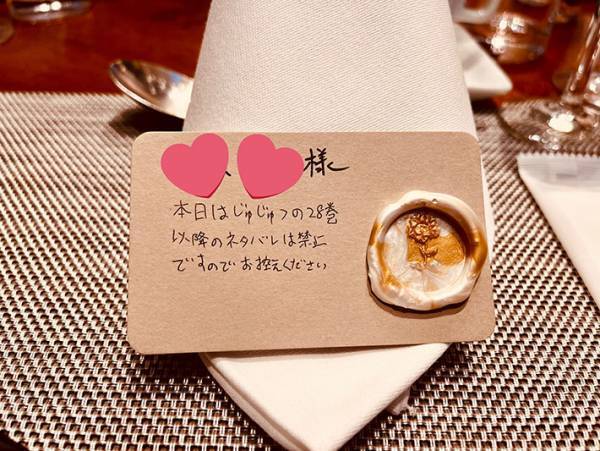 様
本日はじゅじゅつの28巻
以降のネタバレは禁止
ですのでお控えください